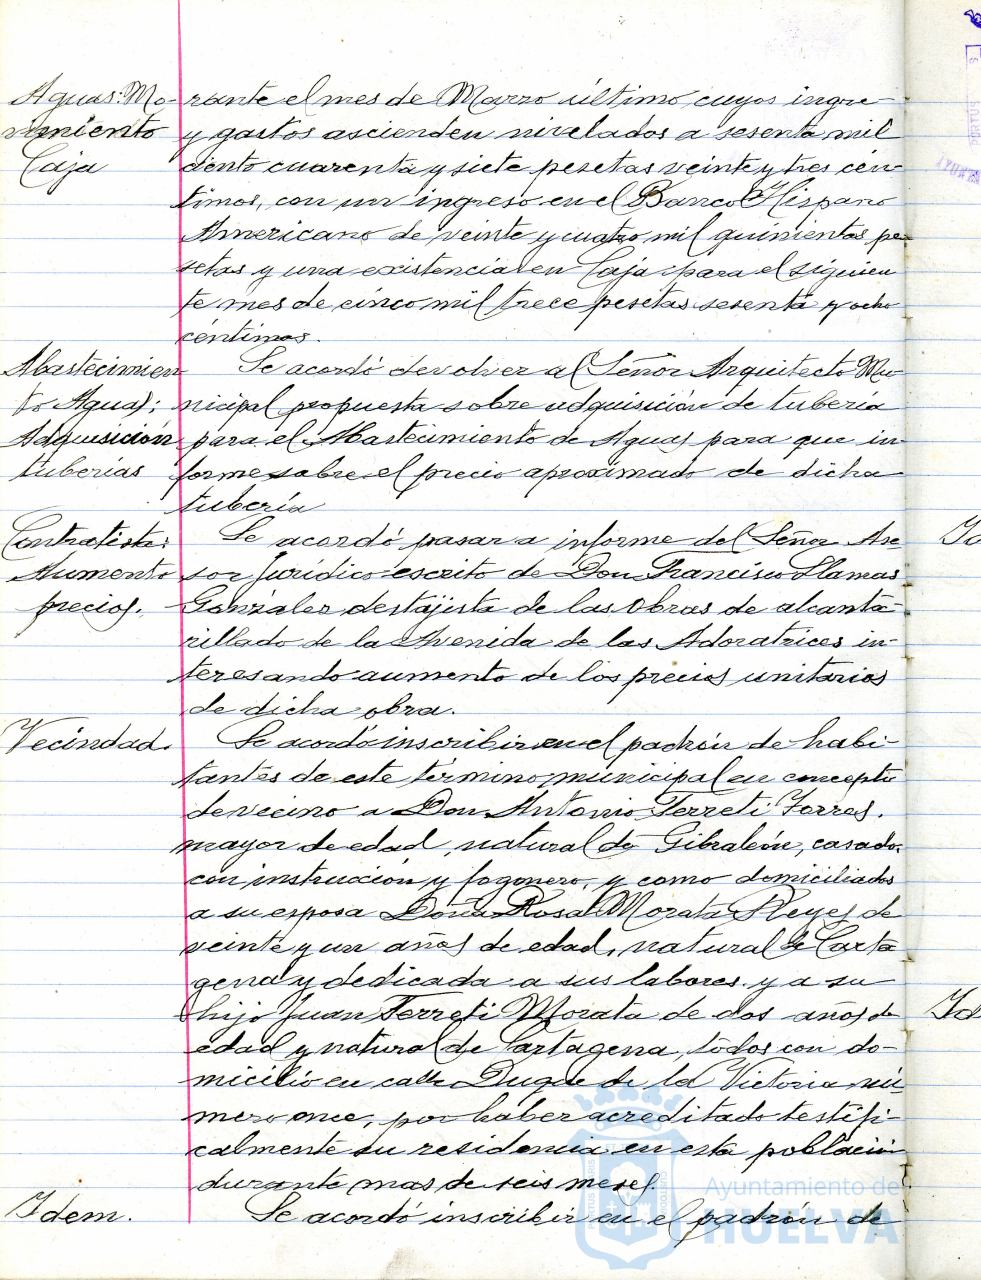 Aguas: Mo-
vimiento
Caja
rante el mes de Marzo último, cuyos ingre-
y gastos ascienden nivelados a sesenta mil
ciento cuarenta y siete pesetas veinte y tres cén-
timos, con un ingreso en el Banco Hispano
Americano de veinte y cuatro mil quinientas pe-
setas y una existencia en Caja para el siguien
te mes de cinco mil trece pesetas sesenta y ocho
céntimos.
Abastecimien
to Aguas:
Adquisición
tuberías
Se acordó devolver al Señor Arquitecto Mu-
nicipal propuesta sobre adquisición de tubería
para el Abastecimiento de Aguas para que in-
forme sobre el precio aproximado de dicha
tubería
Contratista:
Aumento
precios.
Se acordó pasar a informe del Señor Ase-
sor Jurídico escrito de Don Francisco Llamas
González destajista de las obras de alcanta-
rillado de la Avenida de las Adoratrices in-
teresando aumento de los precios unitarios
de dicha obra.
Vecindad.
Se acordó inscribir en el padrón de habi-
tantes de este término municipal en concepto
de vecino a Don Antonio Ferreti Torres,
mayor de edad, natural de Gibraleón, casado,
con instrucción y fogonero, y como domiciliados
a su esposa Doña Rosa Morata Reyes de
veinte y un años de edad, natural de Carta
gena y dedicada a sus labores y a su
hijo Juan Ferreti Morata de dos años de
edad y natural de Cartagena, todos con do-
micilio en calle Duque de la Victoria nú-
mero once, por haber acreditado testifi-
calmente su residencia en esta población
durante mas de seis meses.
Idem.
Se acordó inscribir en el padrón de
Ayuntamiento de
HUELVA